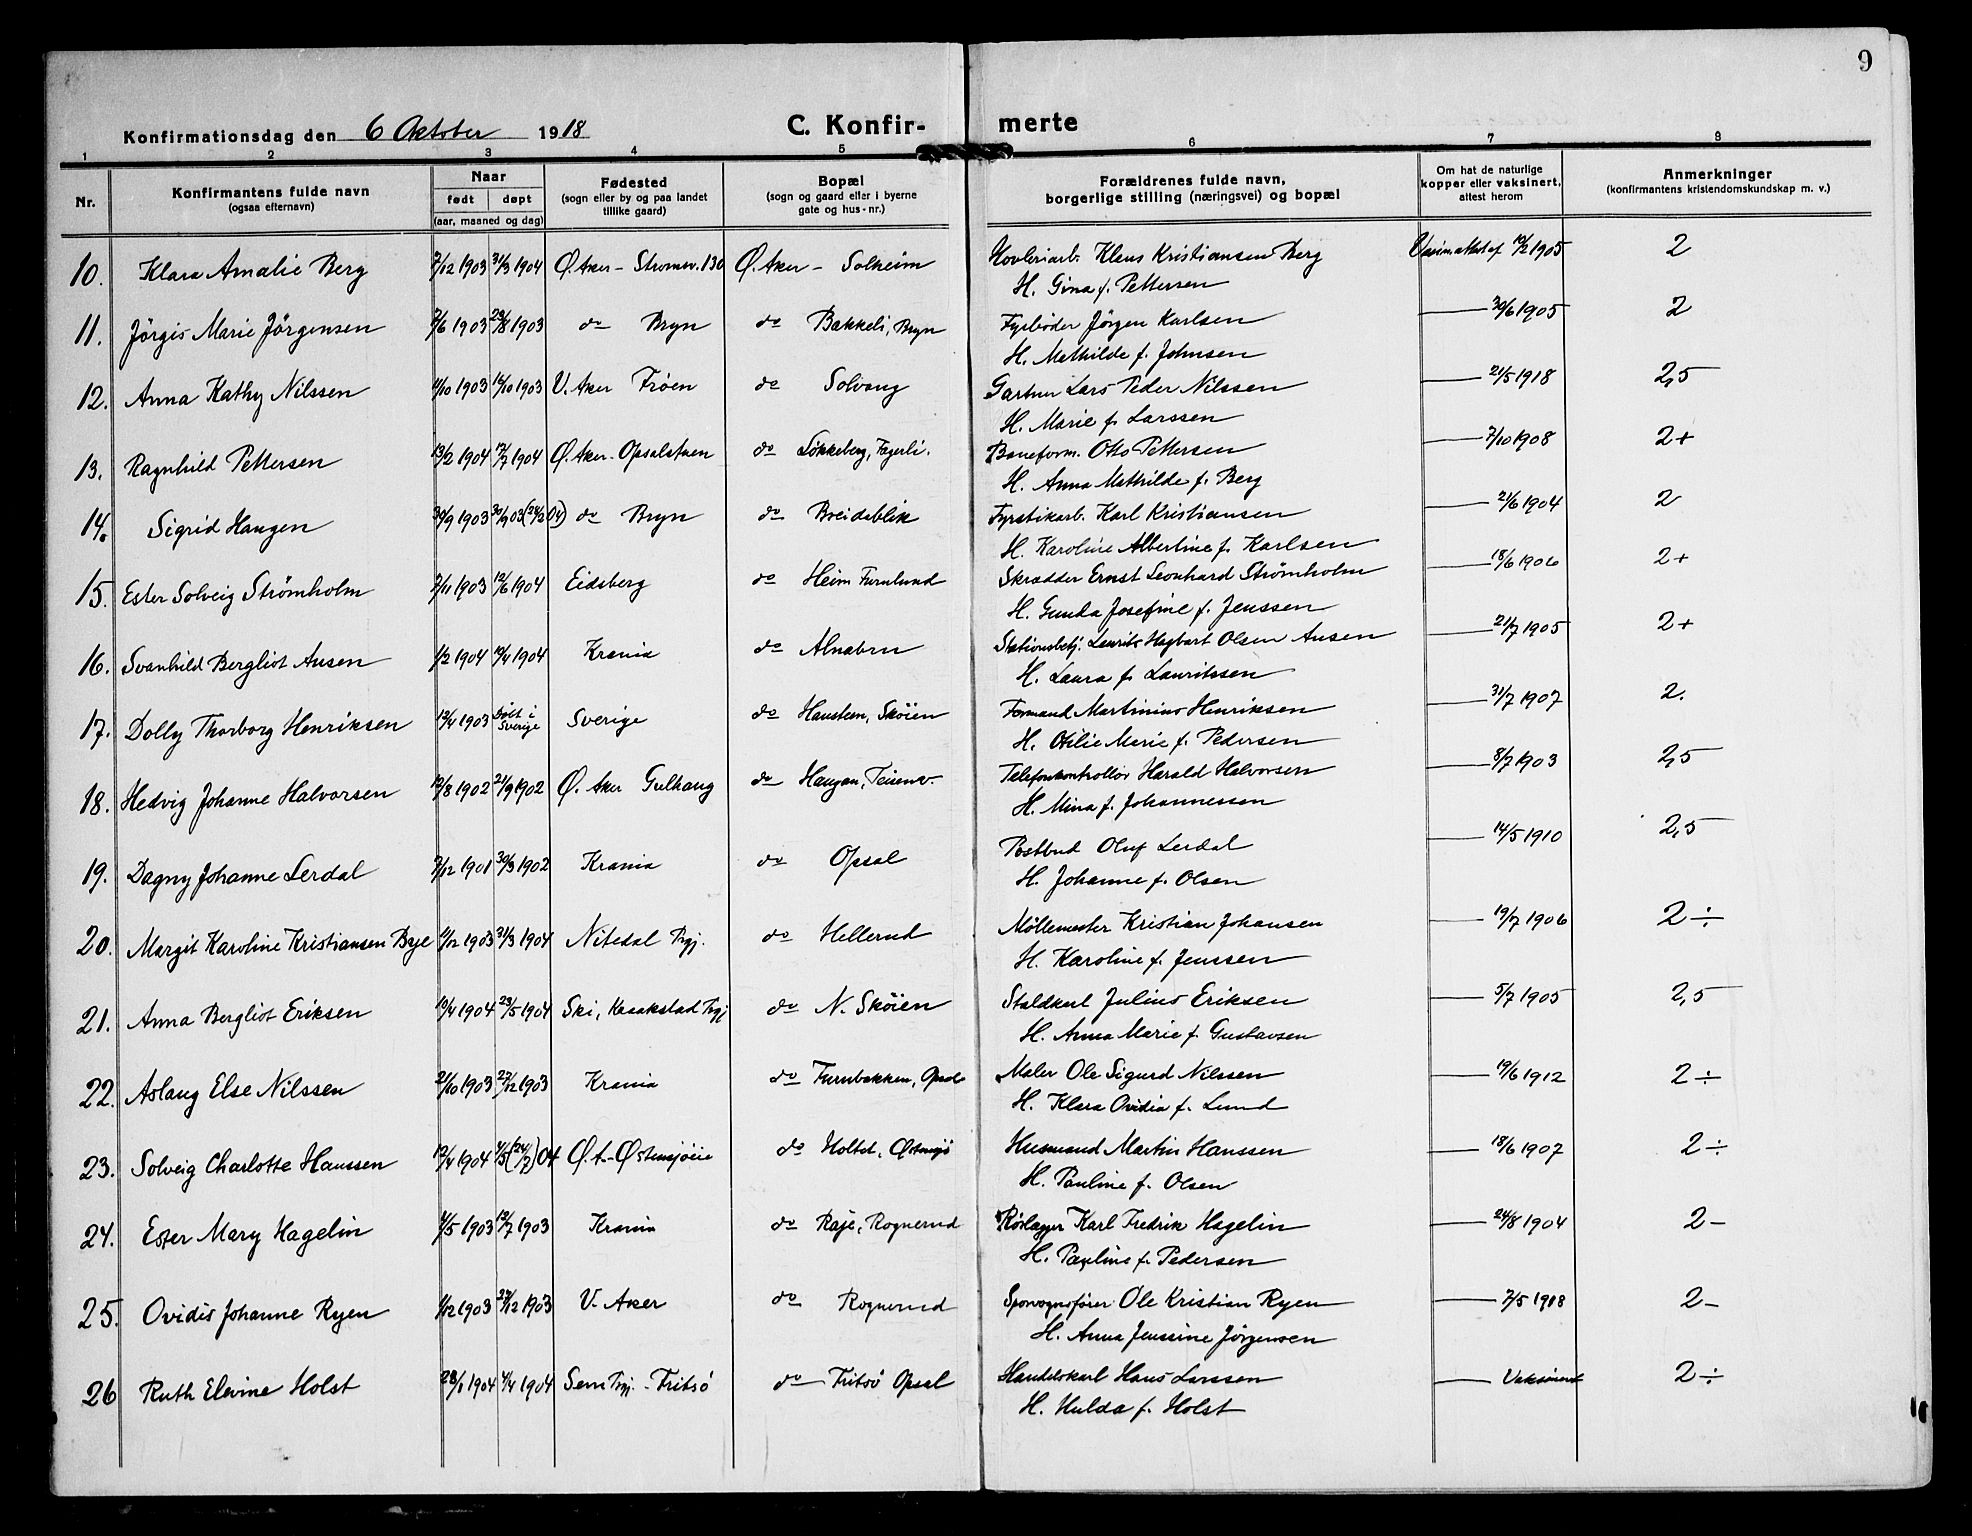 9
Konfirmationsdag den 6 Oktober 1918 C. Konfir- merte
1 2 3 4 5 6 7 8
Nr.
Konfirmantens fulde navn
(ogsaa efternavn)
Naar
født døpt
(aar, maaned og dag)
Fødested
(sogn eller by og paa landet
tillike gaard)
Bopæl
(sogn og gaard eller i byerne
gate og hus-nr.)
Forældrenes fulde navn,
borgerlige stilling (næringsvei) og bopæl
Om hat de naturlige
kopper eller vaksinert,
attest herom
Anmerkninger
(konfirmantens kristendomskundskap m. v.)
10. Klara Amalie Berg 7/12 1903 31/3 1904 Ø. Aker - Stromsv. 130 Ø. Aker - Solheim Høvleriarb. Klaus Kristiansen Berg 1905 2
H. Gina f. Pettersen
11. Jörgis Marie Jörgensen 7/6 1903 23/8 1903 do Bryn do Bakkeli, Bryn Fyrbøder Jörgen Karlsen — 30/6 1905 2
H. Mathilde f. Johnsen
12. Anna Kathy Nilssen 1903 1903 V. Aker Frøen do Solvang Gartner Lars Peder Nilssen — 21/5 1918 2,5
H. Marie f. Larssen
13. Ragnhild Pettersen 13/2 1904 17/7 1904 Ø. Aker. Opsalstuen do Løkkeberg, Fagerli. Baneform. Otto Pettersen — 7/10 1908 2+
H. Anna Mathilde f. Berg
14. Sigrid Haugen 30/9 1903 30/9 03 (28/2 04) do Bryn do Breidablik Fyrstikarb. Karl Kristiansen — 21/6 1904 2
H. Karoline Albertine f. Karlsen
15. Ester Solveig Strømholm 7/11 1903 12/6 1904 Eidsberg do Heim Furulund Skrædder Ernst Leonhard Strømholm — 18/6 1906 2+
H. Gunda Josefine f. Jenssen
16. Svanhild Bergliot Ausen 1/2 1904 10/4 1904 Krania do Alnabru Stationsbetj. Laurits Hagbart Olsen Ausen — 21/7 1905 2+
H. Laura f. Lauritssen
17. Dolly Thorborg Henriksen 12/4 1903 Døbt i Sverige Sverige do Haustuen, Skøien Formand Martinius Henriksen — 31/7 1907 2.
H. Otilie Marie f. Pedersen
18. Hedvig Johanne Halvorsen 19/8 1902 21/9 1902 Ø. Aker Gulhaug do Haugan, Teisenv. Telefonkontrollør Harald Halvorsen — 8/7 1903 2,5
H. Mina f. Johannessen
19. Dagny Johanne Lerdal 7/12 1901 30/3 1902 Krania do Opsal Postbud Oluf Lerdal — 14/5 1910 2,5
H. Johanne f. Olsen
20. Margit Karoline Kristiansen Bye 11/12 1903 31/3 1904 Nitedal Prgj. do Hellerud Møllemester Kristian Johansen — 19/7 1906 2 ÷
H. Karoline f. Jenssen
21. Anna Bergliot Eriksen 10/4 1904 23/5 1904 Ski, Kraakstad Prgj do N. Skøien Staldkarl Julius Eriksen — 5/7 1905 2,5
H. Anna Marie f. Gustavsen
22. Aslaug Else Nilssen 21/10 1903 27/12 1903 Krania do Furubakken, Opsal Maler Ole Sigurd Nilssen — 19/6 1912 2 ÷
H. Klara Ovidia f. Lund
23. Solveig Charlotte Hanssen 12/4 1904 4/5 (24/7) 04 Ø. A - Østensjøie do Holtet, Østensjø Husmand Martin Hanssen — 18/6 1907 2 ÷
H. Pauline f. Olsen
24. Ester Mary Hagelin 4/5 1903 12/7 1903 Krania do Raje, Rognerud Rørlægger Karl Fredrik Hagelin — 24/8 1904 2 -
H. Pauline f. Pedersen
25. Ovidis Johanne Ryen 1/12 1903 27/12 1903 V. Aker do Rognerud Sporvognsfører Ole Kristian Ryen — 7/5 1918 2 -
H. Anna Jenssine Jörgensen
26 Ruth Elevine Holst 28/1 1904 4/4 1904 Sem Prgj. - Fritsø do Fritsø Opsal Handelskarl Hans Larssen — Vaksinert 2 ÷
H. Hulda f. Holst